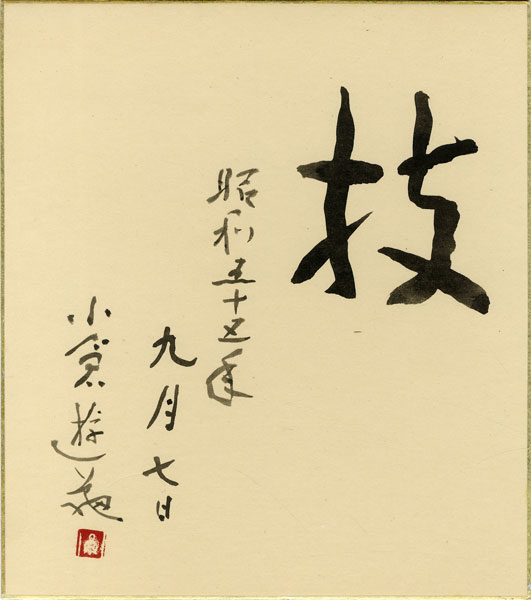 技
昭和五十五年
九月七日
小倉遊亀